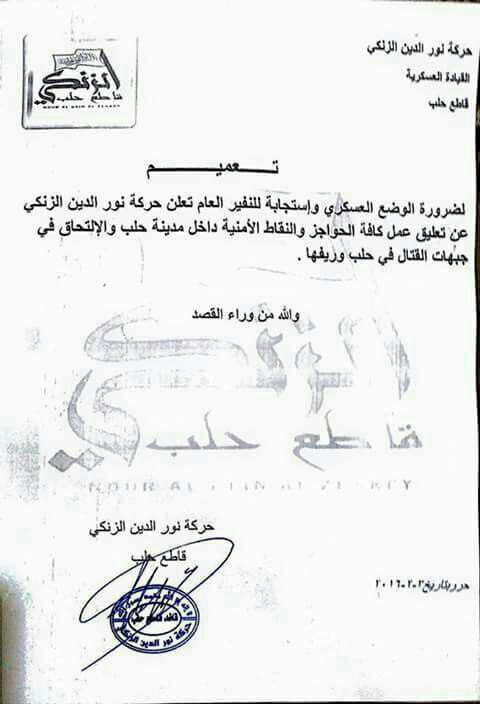 حركة نور الدين الزنكي
القيادة العسكرية
قاطع حلب
الزنكي
قاطع حلب
NOUR AL DEIN AL ZENKEY
تعميم
لضرورة الوضع العسكري وإستجابة للنفير العام تعلن حركة نور الدين الزنكي
عن تعليق عمل كافة الحواجز والنقاط الأمنية داخل مدينة حلب والإلتحاق في
جبهات القتال في حلب وريفها .
والله من وراء القصد
الزنكي
قاطع حلب
حركة نور الدين الزنكي
قاطع حلب
قائد قاطع حلب
حركة نور الدين الزنكي
حرر بتاريخ ٣-٢-٢٠١٦